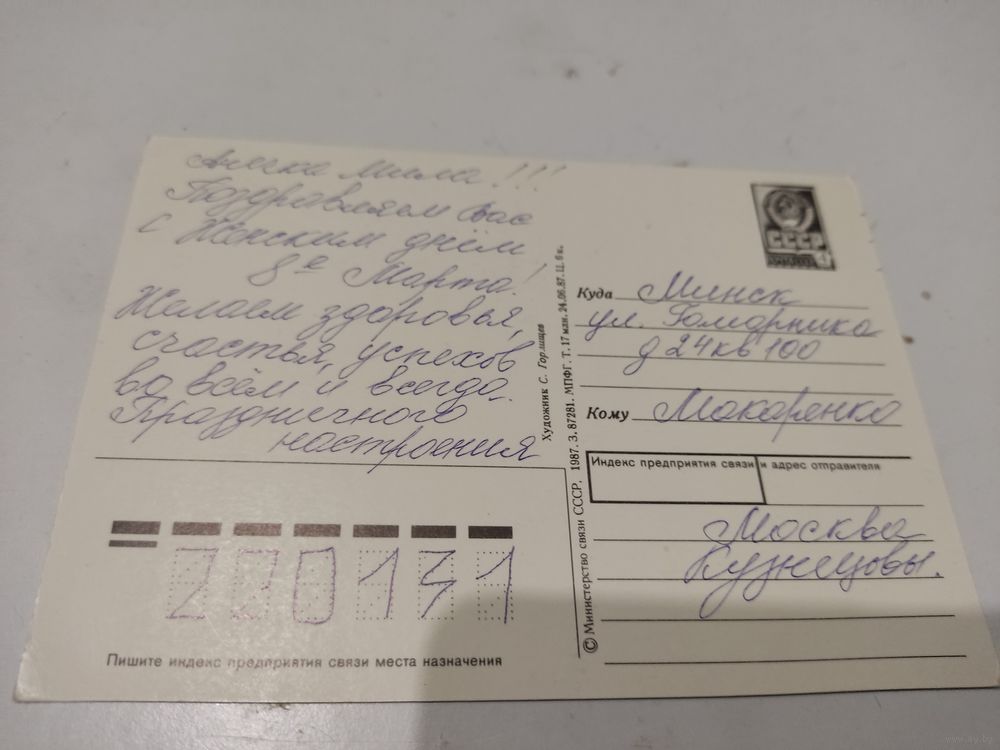 Мила!!!
Поздравляем Вас
с Женским днём
8е Марта!
Желаем здоровья,
счастья, успехов
во всём и всегда.
Праздничного
настроения
Пишите индекс предприятия связи места назначения
Художник С. Горлищев
© Министерство связи СССР. 1987. З. 87281. МПФГ. Т. 17 млн. 24.06.87. Ц. 6 к.
СССР
4
Куда Минск
ул.
д 24 кв 100
Кому Макаренко
Индекс предприятия связи и адрес отправителя
Москва
Кузнецовы.